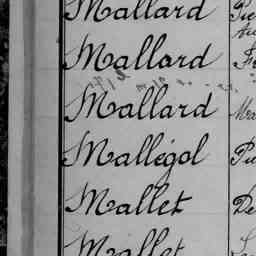 Mallard
Mallard
Mallard
Mallégol
Mallet
Mallet